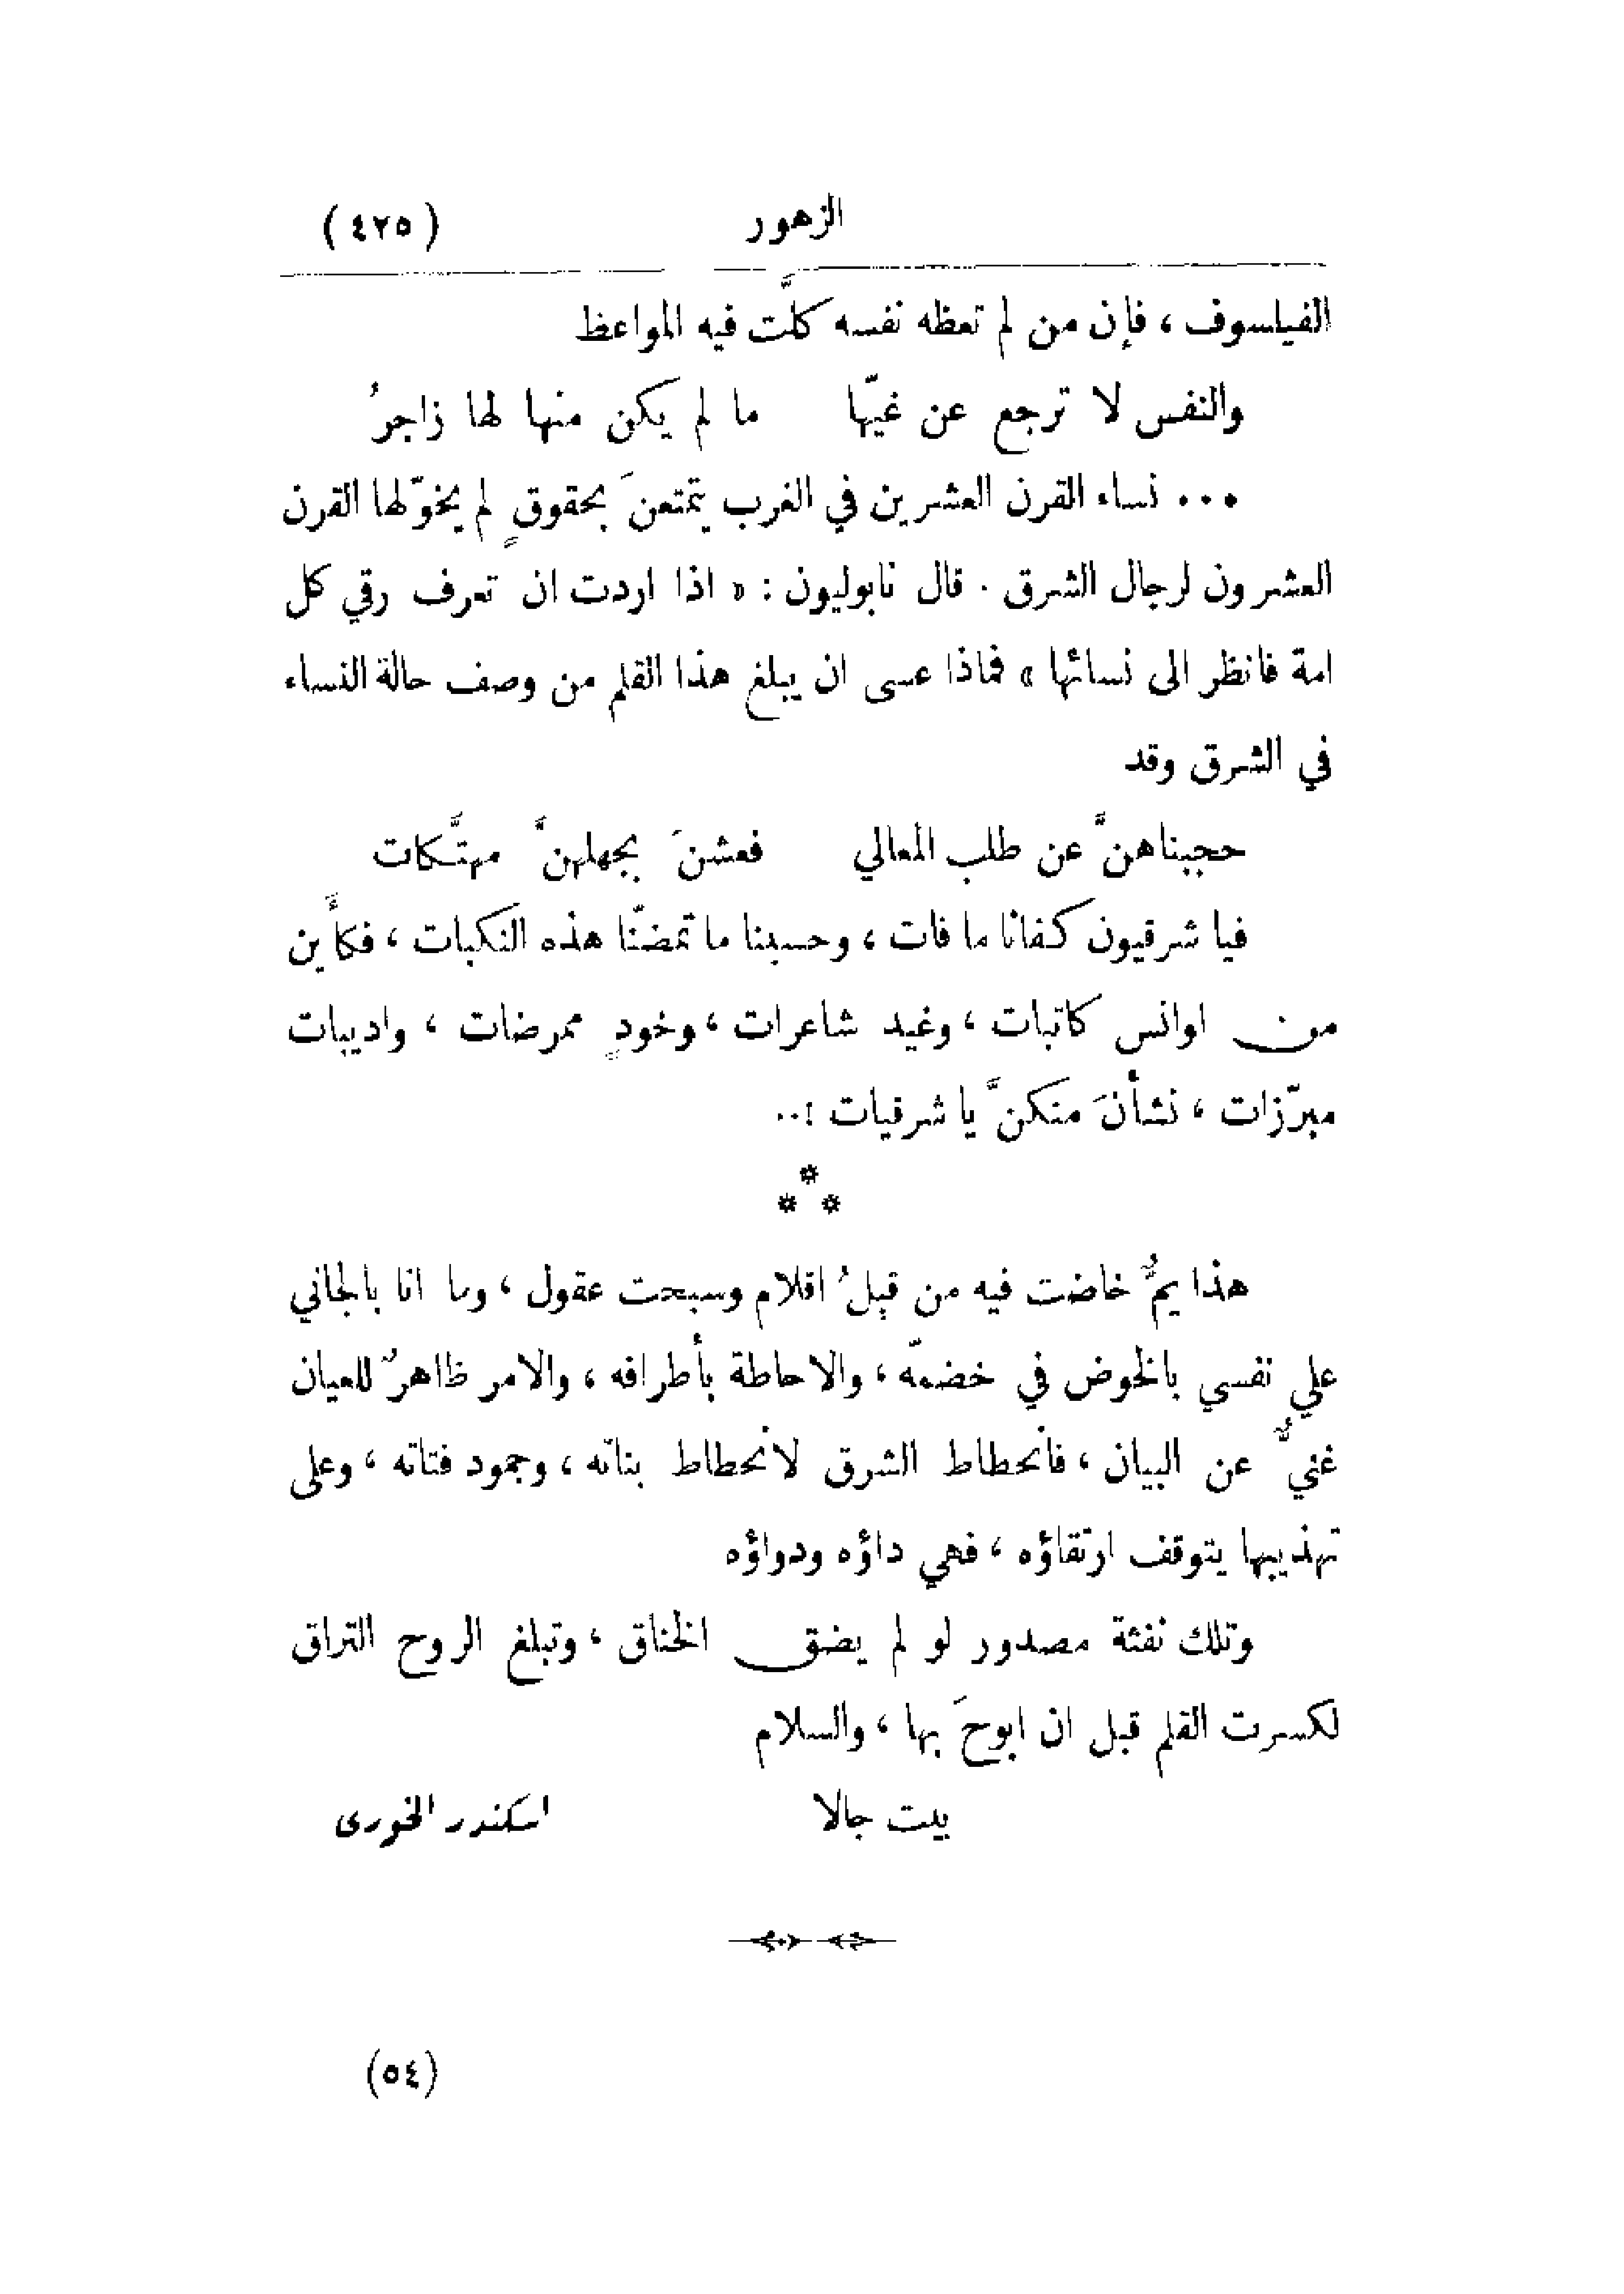 الزهور (٤٢٥)
الفيلسوف ، فإن من لم تعظه نفسه كلَّت فيه المواعظ
والنفس لا ترجع عن غيّها ما لم يكن منها لها زاجرُ
... نساء القرن العشرين في الغرب يتمتعنَ بحقوقٍ لم يخوّلها القرن
العشرون لرجال الشرق . قال نابوليون : « اذا اردت ان تعرف رقي كل
امة فانظر الى نسائها » فماذا عسى ان يبلغ هذا القلم من وصف حالة النساء
في الشرق وقد
حجبناهنَّ عن طلب المعالي فعشنَ بجهلهنَّ مهتَّكات
فيا شرقيون كفانا ما فات ، وحسبنا ما تمضّنا هذه النكبات ، فكأَين
من اوانس كاتبات ، وغيد شاعرات ، وخودٍ ممرضات ، واديبات
مبرّزات ، نشأنَ منكنَّ يا شرقيات ؛..
* * *
هذا يمٌّ خاضت فيه من قبلُ اقلام وسبحت عقول ، وما انا بالجاني
علي نفسي بالخوض في خضمّه ، والاحاطة بأطرافه ، والامر ظاهرٌ للعيان
غنيٌّ عن البيان ، فأنحطاط الشرق لأنحطاط بناته ، وجمود فتاته ، وعلى
تهذيبها يتوقف ارتقاؤه ، فهي داؤه ودواؤه
وتلك نفثة مصدور لو لم يضق الخناق ، وتبلغ الروح التراق
لكسرت القلم قبل ان ابوحَ بها ، والسلام
بيت جالا اسكندر الخورى
(٥٤)